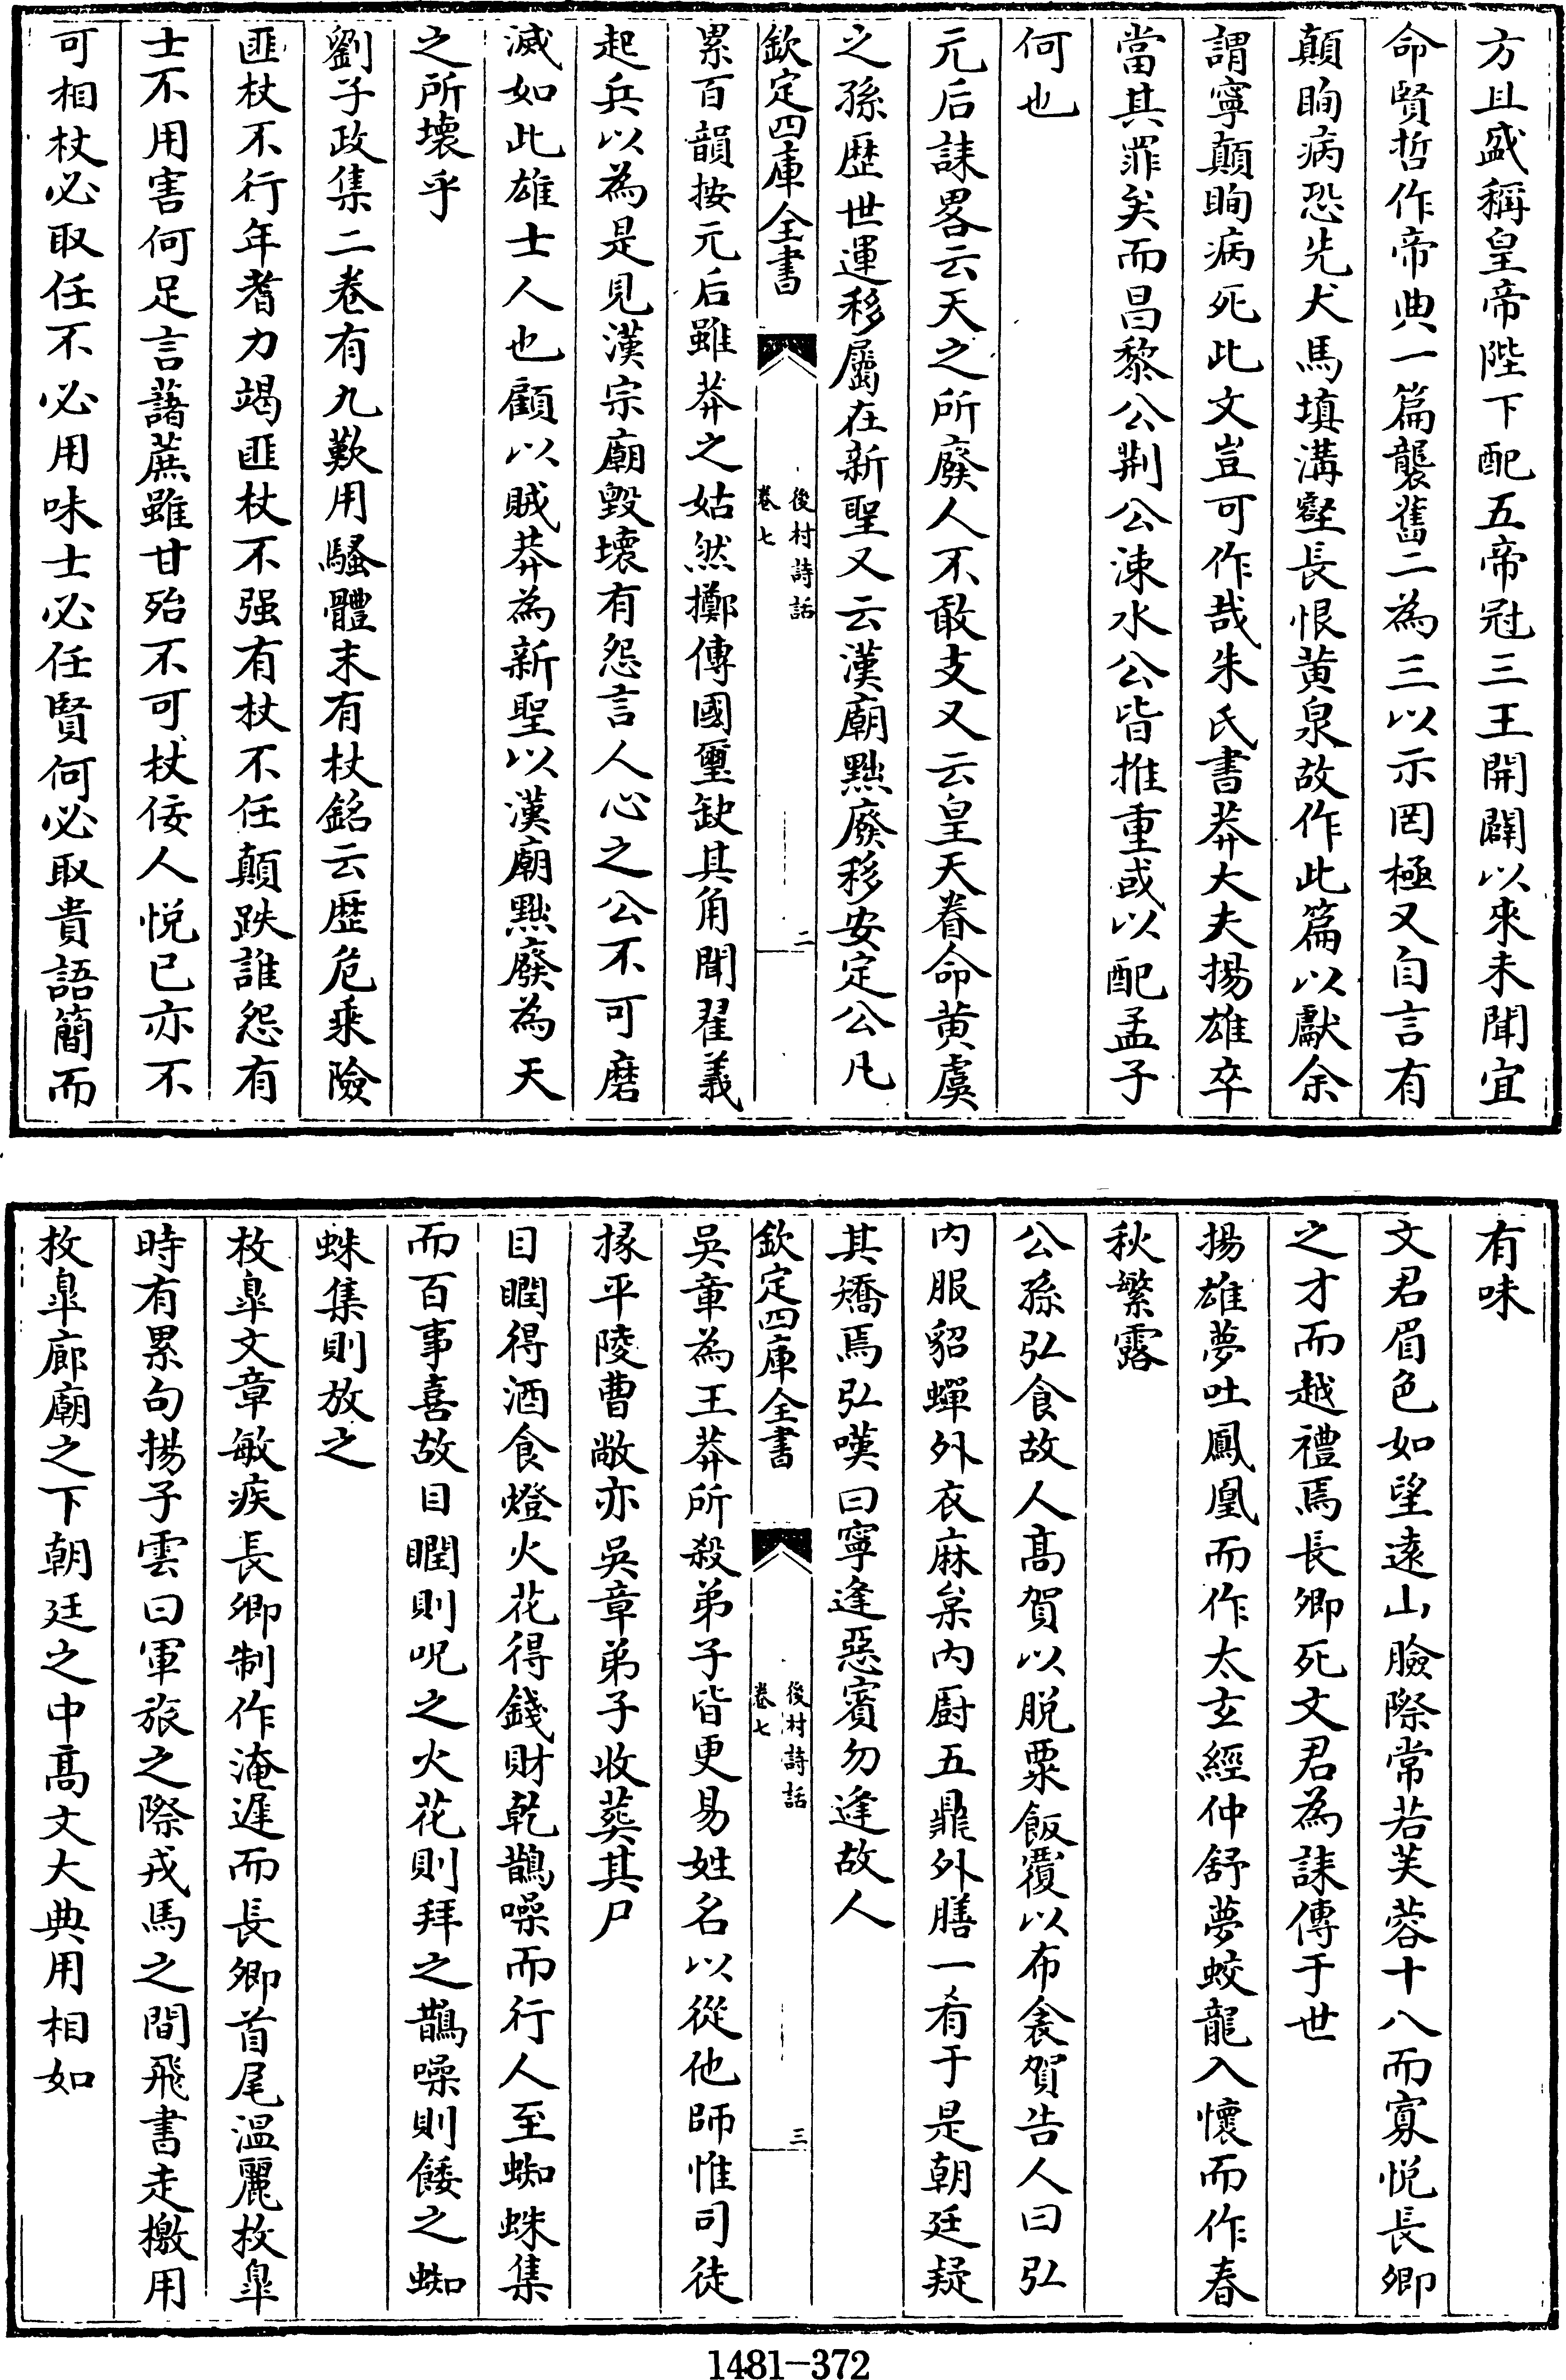 方且盛稱皇帝陛下配五帝冠三王開闢以來未聞宜
命賢哲作帝典一篇襲舊二為三以示罔極又自言有
顛眴病恐先犬馬填溝壑長恨黄泉故作此篇以獻余
謂寧顛眴病死此文豈可作哉朱氏書莽大夫揚雄卒
當其罪矣而昌黎公荆公涑水公皆推重或以配孟子
何也
元后誄畧云天之所廢人不敢支又云皇天眷命黄虞
之孫歴世運移屬在新聖又云漢廟黜廢移安定公凡
欽定四庫全書
後村詩話
卷七
二
累百韻按元后雖莽之姑然擲傳國璽缺其角聞翟義
起兵以為是見漢宗廟毁壞有怨言人心之公不可磨
滅如此雄士人也顧以賊莽為新聖以漢廟黜廢為天
之所壞乎
劉子政集二卷有九歎用騷體末有杖銘云歴危乘險
匪杖不行年耆力竭匪杖不强有杖不任顛跌誰怨有
士不用害何足言藷蔗雖甘殆不可杖佞人悦已亦不
可相杖必取任不必用味士必任賢何必取貴語簡而
有味
文君眉色如望遠山臉際常若芙蓉十八而寡悦長卿
之才而越禮焉長卿死文君為誄傳于世
揚雄夢吐鳳凰而作太玄經仲舒夢蛟龍入懷而作春
秋繁露
公孫弘食故人高賀以脱粟飯覆以布衾賀告人曰弘
内服貂蟬外衣麻枲内厨五鼎外膳一肴于是朝廷疑
其矯焉弘嘆曰寧逢惡賓勿逢故人
欽定四庫全書
後村詩話
卷七
三
吳章為王莽所殺弟子皆更易姓名以從他師惟司徒
掾平陵曹敞亦吳章弟子收葬其尸
目瞤得酒食燈火花得錢財乾鵲噪而行人至蜘蛛集
而百事喜故目瞤則呪之火花則拜之鵲噪則餧之蜘
蛛集則放之
枚臯文章敏疾長卿制作淹遲而長卿首尾温麗枚臯
時有累句揚子雲曰軍旅之際戎馬之間飛書走檄用
枚臯廊廟之下朝廷之中髙文大典用相如
1481-372